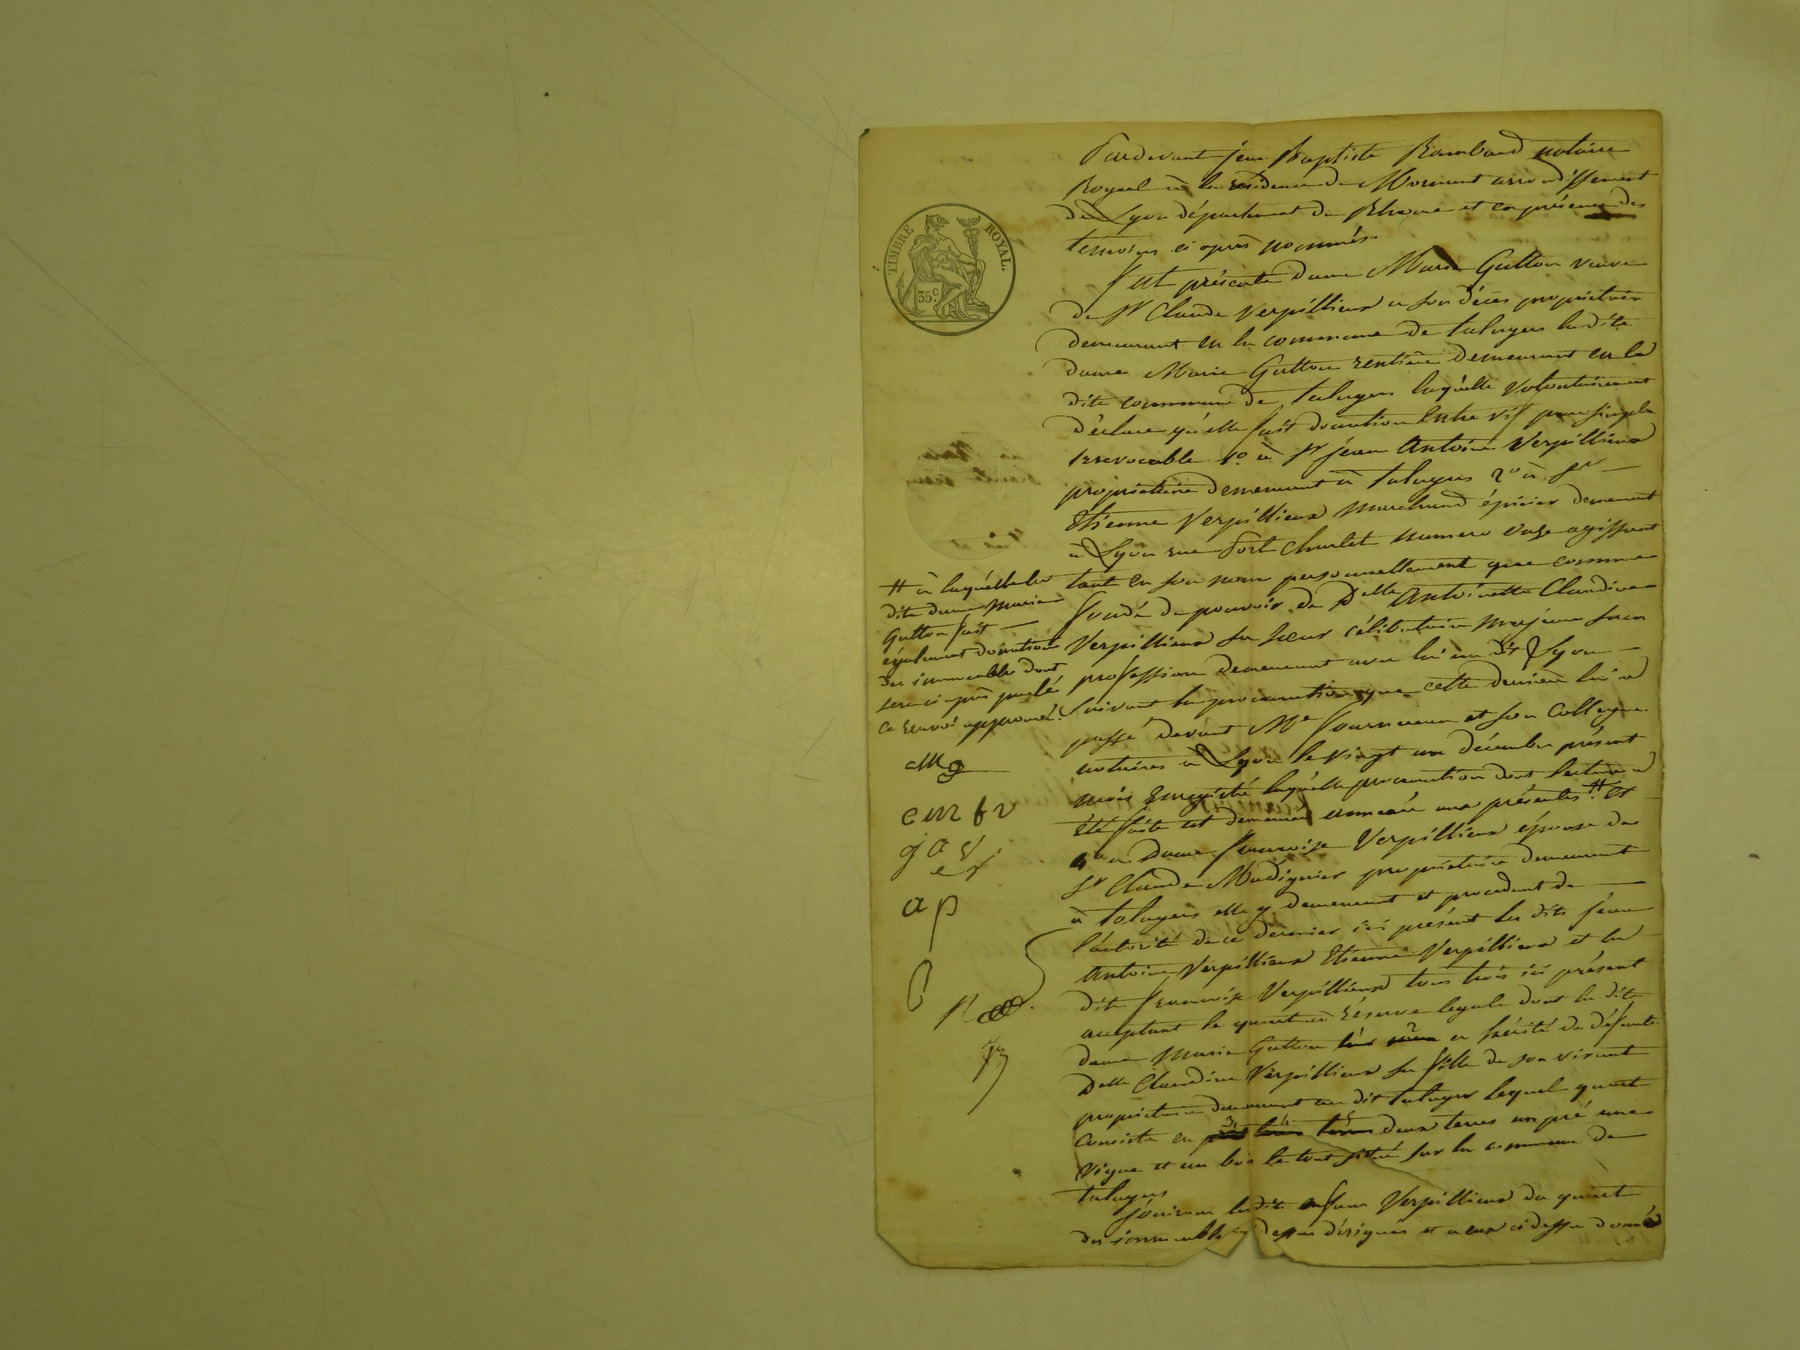 Pardevant jean Baptiste Rambaud notaire
Royal à la résidence de Mornant arrondissement
de Lyon département du Rhone et en présence des
temoins ci après nommés.
TIMBRE ROYAL.
35 C.
fut présente Dame Marie Gutton veuve
de Sr Claude Verpillieux a son décès propriétaire
demeurant en la commune de taluyers ladite
dame Marie Gutton rentière demeurant en la
dite commune de taluyers laquelle volontairement
déclare qu'elle fait donation entre vif pure simple
irrevocable 1o à Sr jean Antoine Verpillieux
propriétaire demeurant à taluyers 2o à Sr
Etienne Verpillieux marchand épicier demeurant
à Lyon rue Port Charlet numero onze agissant
tant en son nom personnellement que comme
fondé de pouvoir de Delle Antoinette Claudine
Verpillieux sa soeur célibataire majeure sans
profession demeurant avec lui au dit Lyon
suivant la procuration que cette dernière lui a
passé devant Me Fournereau et son Collegue
notaires à Lyon le vingt un décembre présent
mois Enregistré laquelle procuration dont lecture a
été faite est demeurée annexée aux présentes # et
4o à Dame françoise Verpillieux épouse de
Sr Claude Madignier propriétaire demeurant
à taluyers elle y demeurant et procedant de
l'autorité de ce dernier ici présent les dits jean
Antoine Verpillieux Etienne Verpillieux et la
dite françoise Verpillieux tous trois ici présent
acceptant le quart à réserve legale dont la dite
dame Marie Gutton leur mère a hérité de défunte
Delle Claudine Verpillieux sa fille de son vivant
propriétaire demeurant au dit taluyers lequel quart
consiste en deux terres un pré une
vigne et un bois le tout situé sur la commune de
taluyers
jouiront lesdits enfans Verpillieux du quart
des immeubles ci dessus désignés et a eux ci dessus donné
# à laquelle la
dite dame Marie
Gutton fait
également donation
des immeubles dont
sera ci après parlé
ce renvoi approuvé.
mg
cm fv
j a v
e v
a p